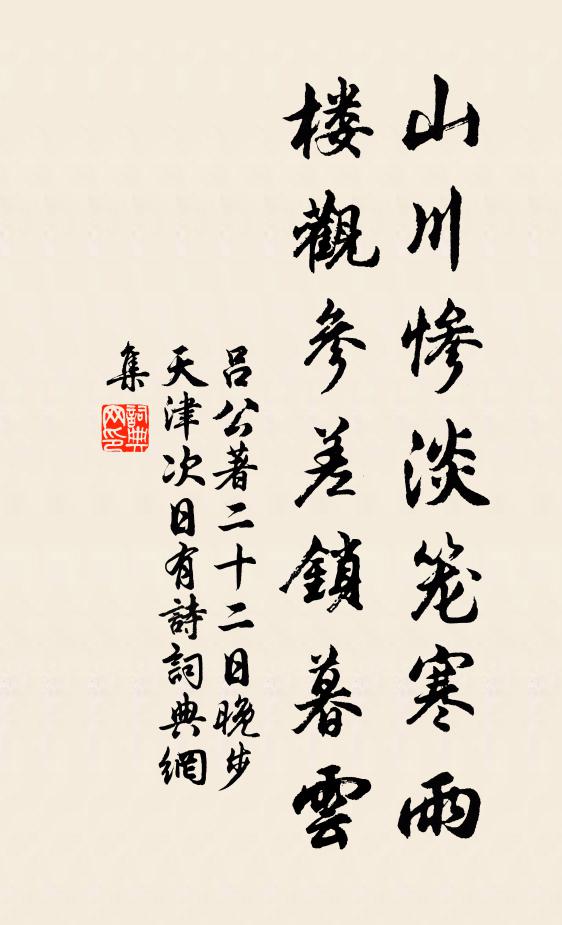 山川惨淡笼寒雨
楼觀參差鎖暮雲
吕公著二十二日晚步
天津次日有詩詞典網
集
詞典网印